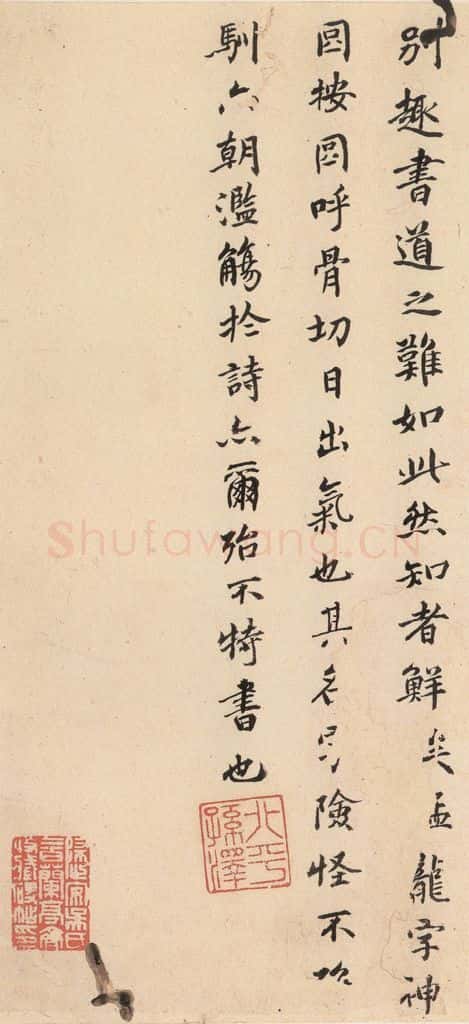 別趣書道之難如此然知者鮮矣孟龍字神
按呼骨切日出氣也其名險怪不
馴六朝濫觴扵詩亦爾殆不特書也
北平孫澤
Shufawang.CN